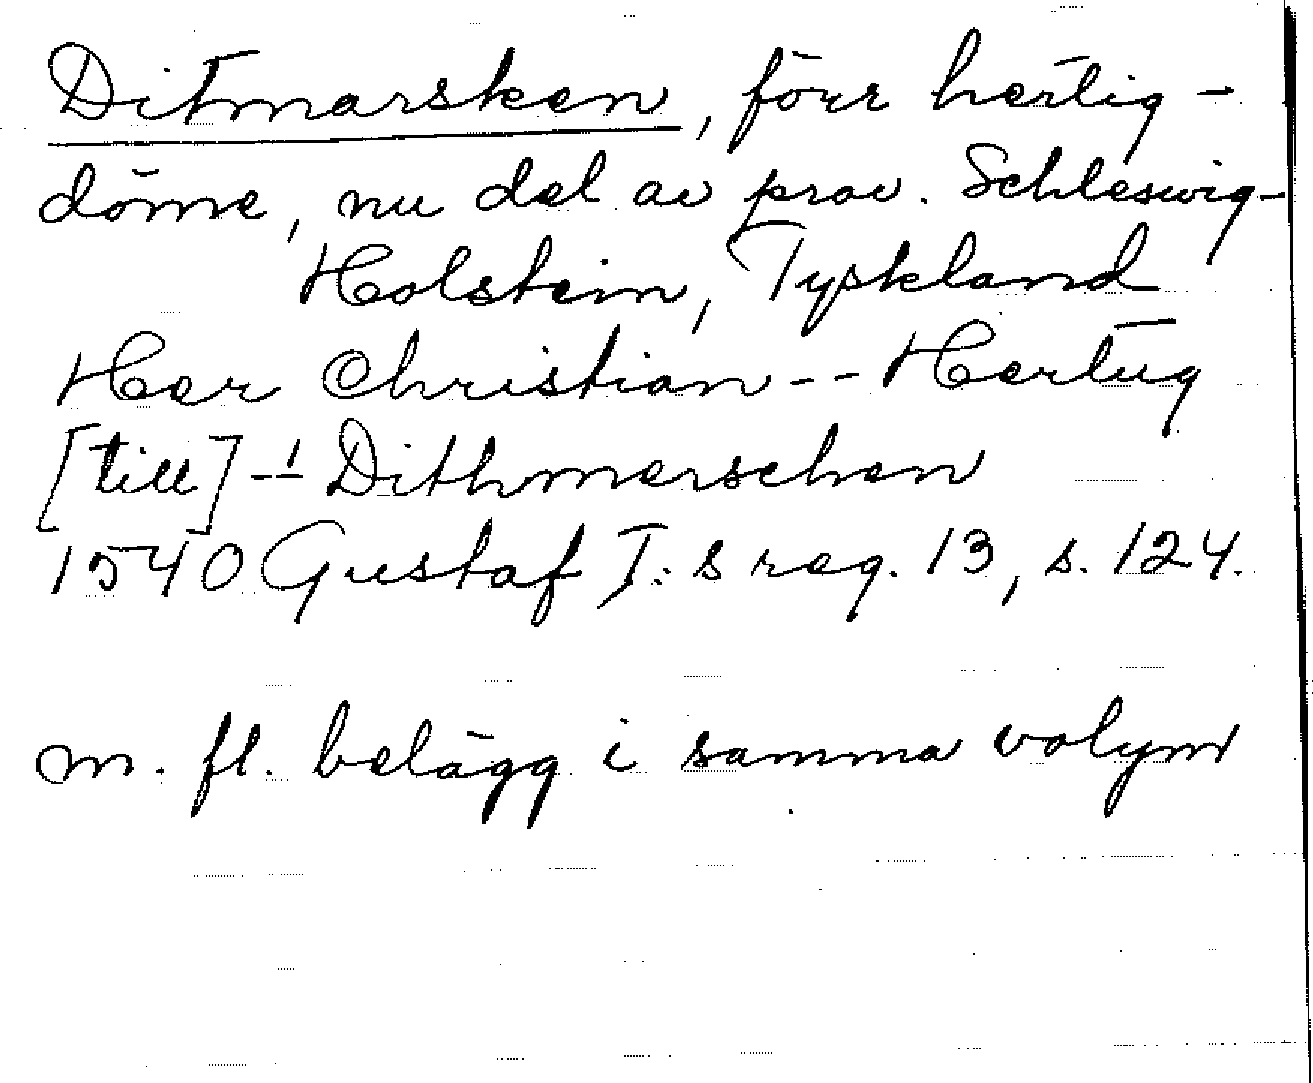 Ditmarsken, förr hertig-
döme, nu del av prov. Schleswig-
Holstein, Tyskland
Her Christian -- Hertug
[till] -1- Dithmerschen
1540 Gustaf I:s reg. 13, s. 124.
m. fl. belägg i samma volym